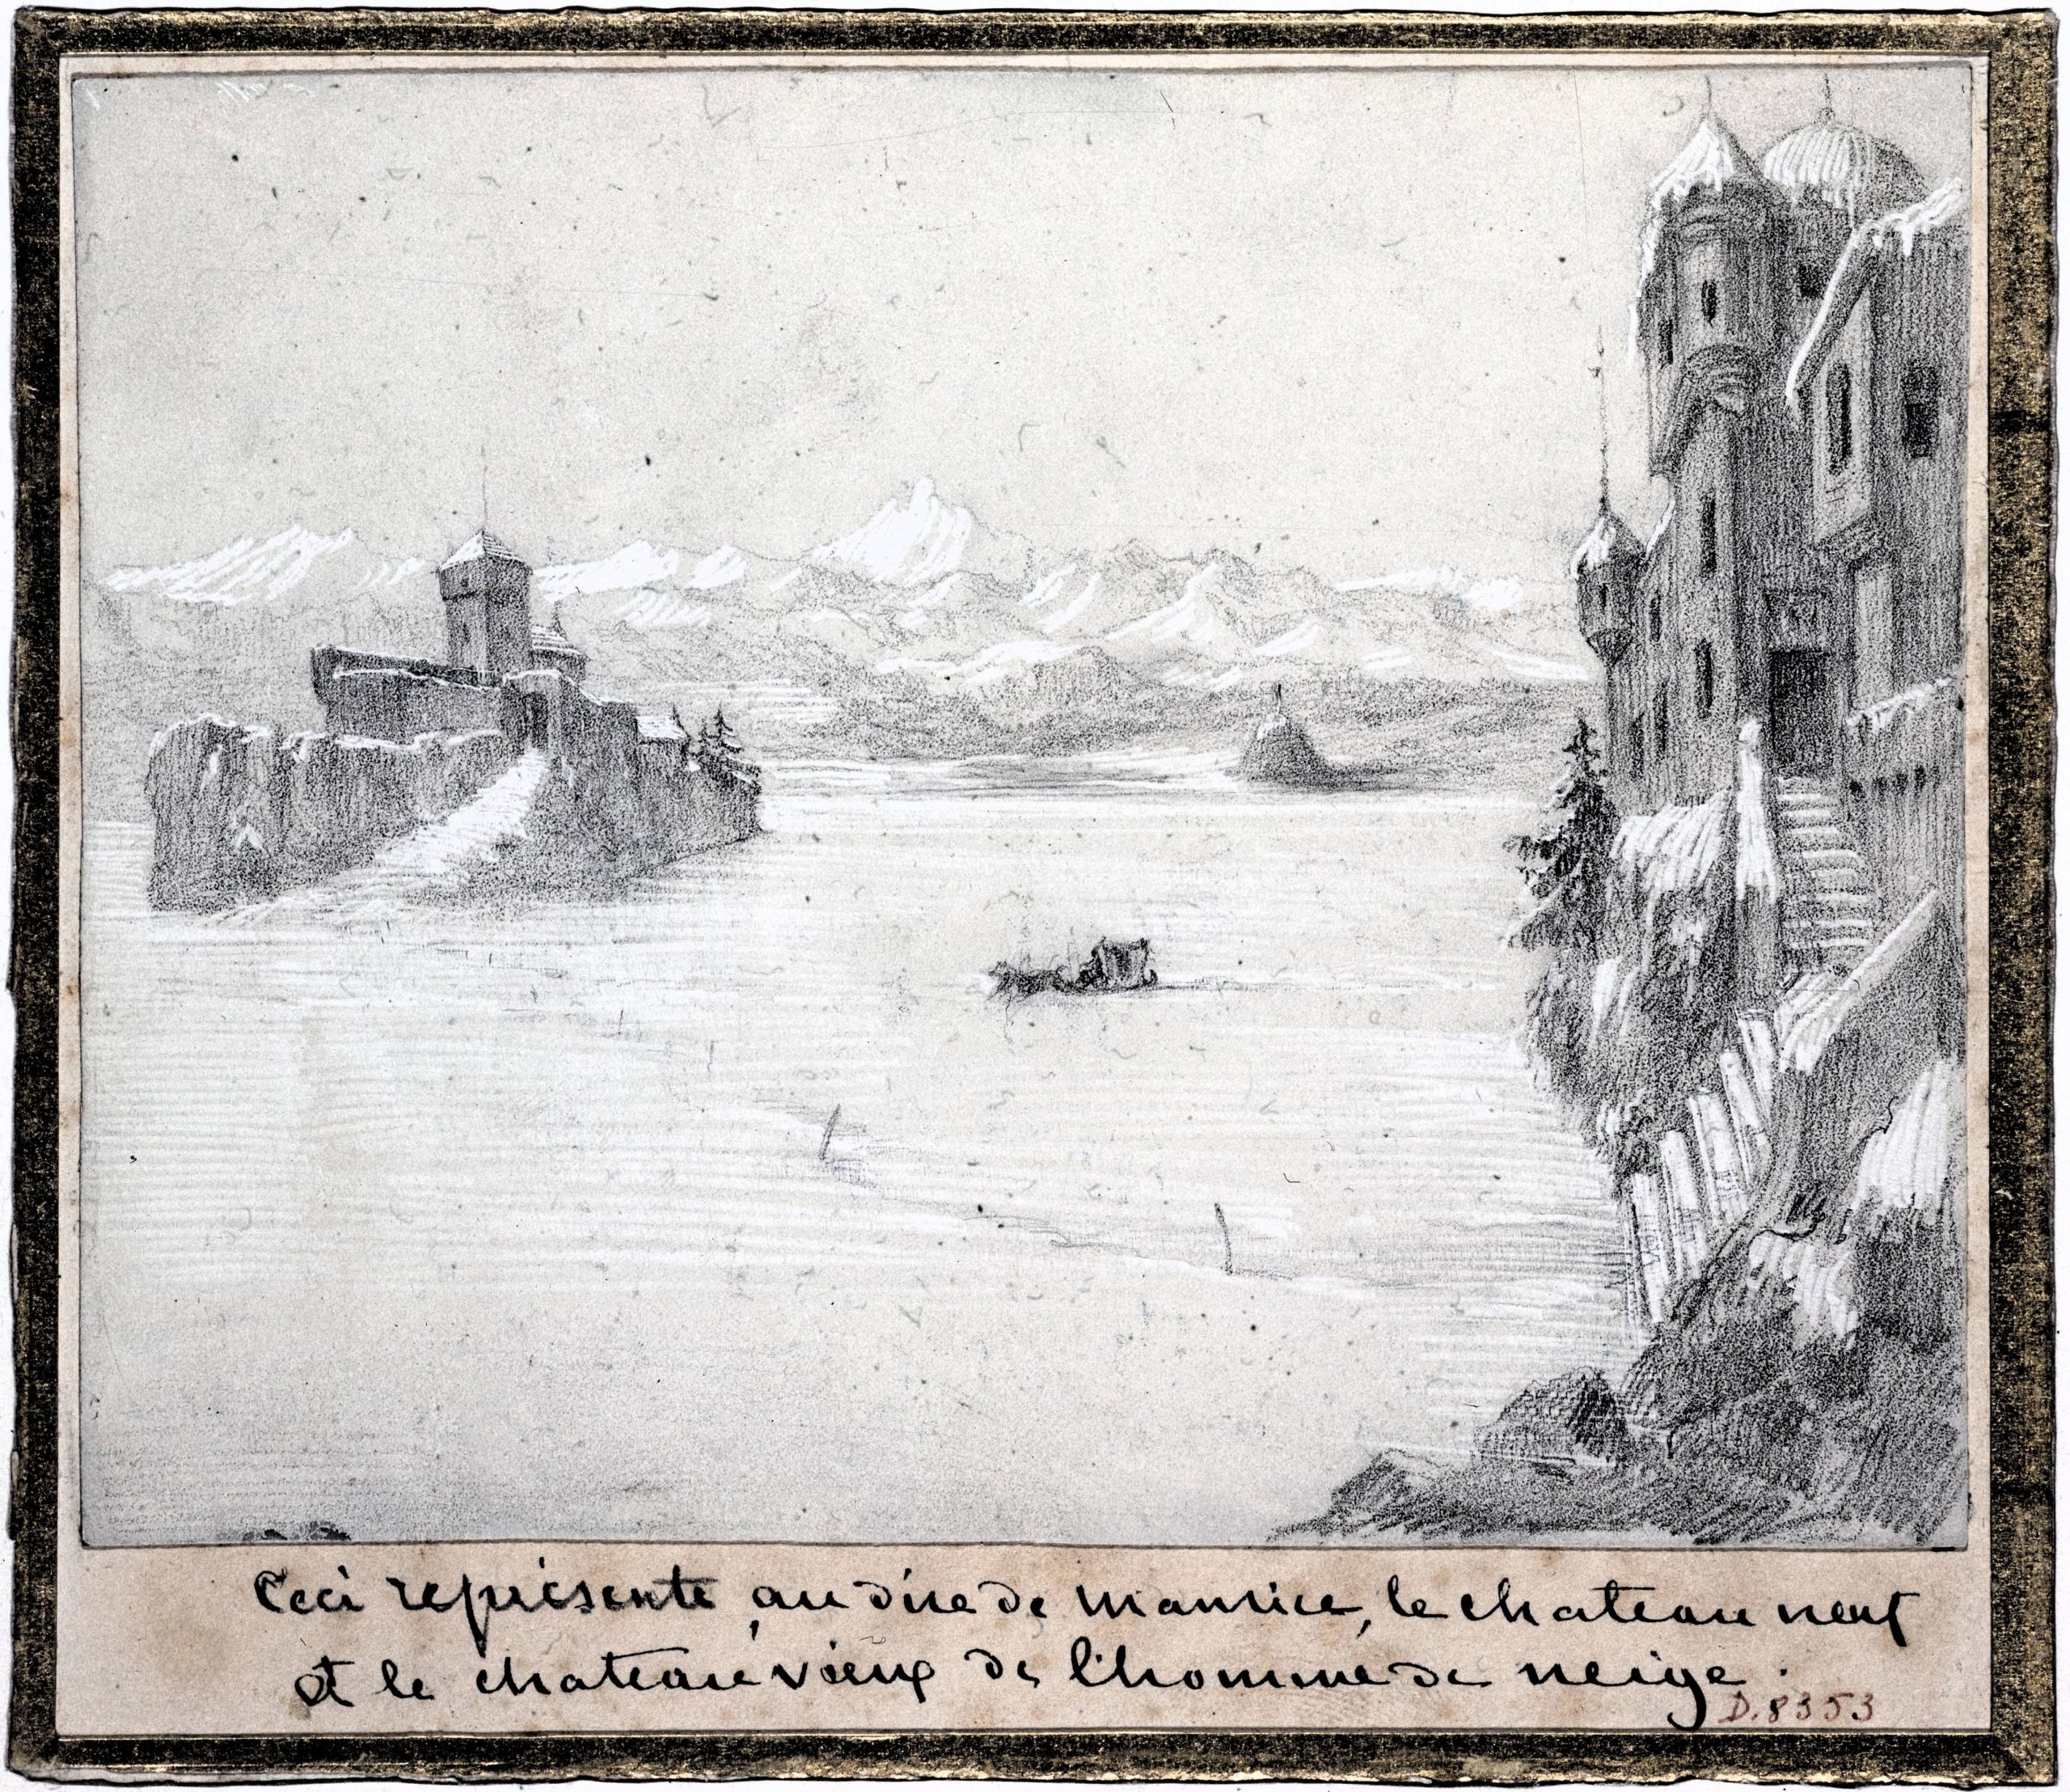 Ceci représente, au dire de Maurice, le chateau neuf
et le chateau vieux de l'homme de neige.
D.8353